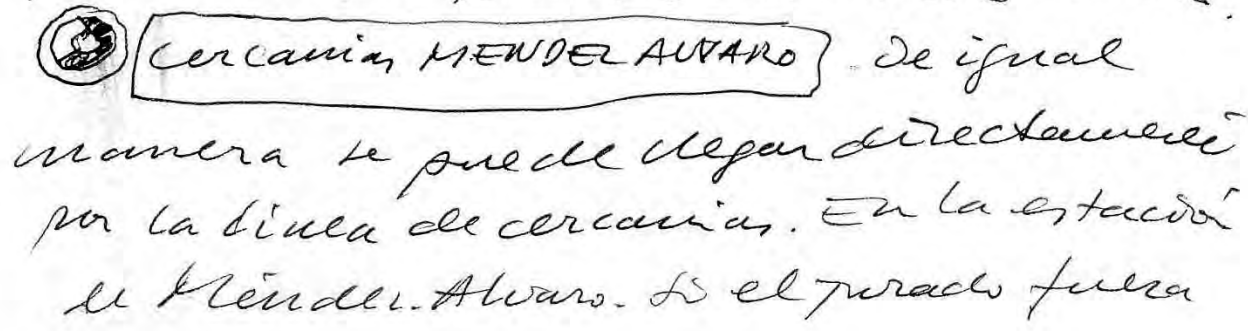 Cercanias MENDEZ ALVARO. De igual
manera se puede llegar directamente
por la linea de cercanias. En la estación
de Méndez-Alvaro. Si el jurado fuera